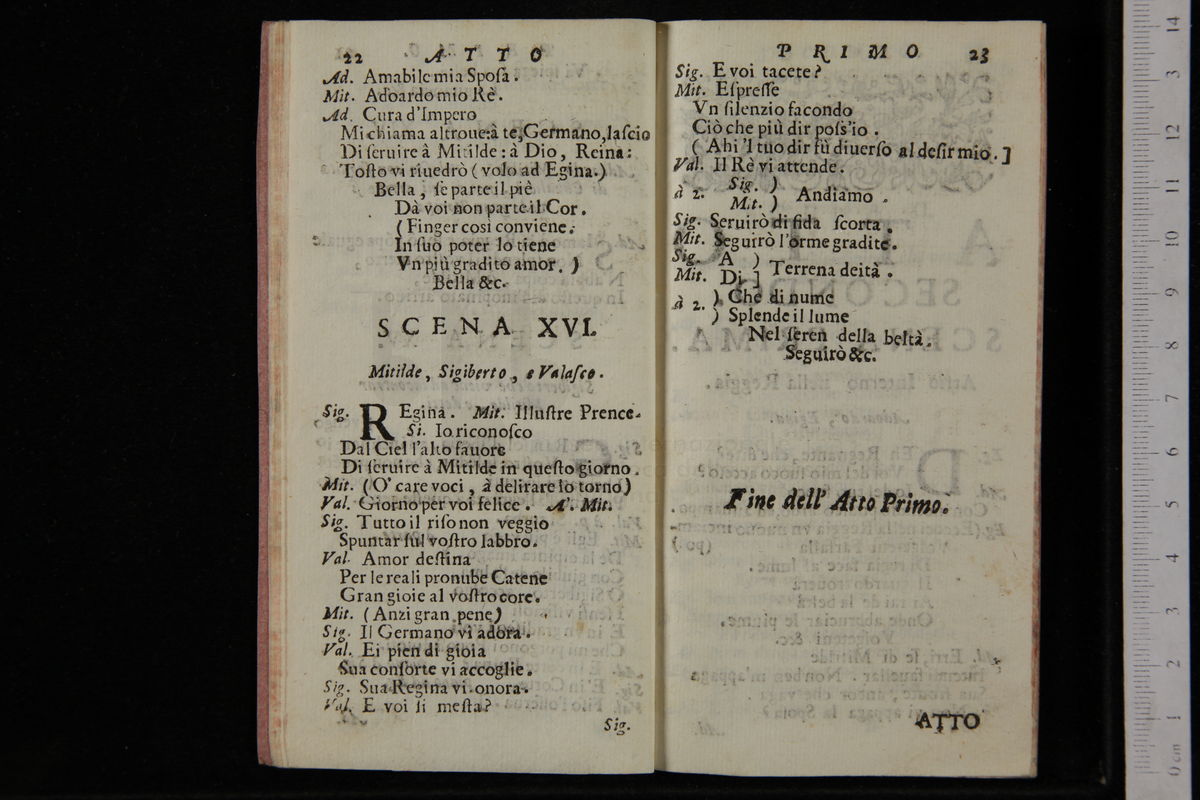 22 ATTO
Ad. Amabile mia Sposa.
Mit. Adoardo mio Rè.
Ad. Cura d'Impero
Mi chiama altroue: à te, Germano, lascio
Di seruire à Mitilde: à Dio, Reina:
Tosto vi riuedrò (volo ad Egina.)
Bella, se parte il piè
Dà voi non parte il Cor.
(Finger cosi conviene.
In suo poter lo tiene
Vn più gradito amor.)
Bella &c.
SCENA XVI.
Mitilde, Sigiberto, e Valasco.
Sig. REgina. Mit. Illustre Prence.
Si. Io riconosco
Dal Ciel l'alto fauore
Di seruire à Mitilde in questo giorno.
Mit. (O' care voci, à delirare io torno)
Val. Giorno per voi felice. A'. Mit.
Sig. Tutto il riso non veggio
Spuntar sul vostro labbro.
Val. Amor destina
Per le reali pronube Catene
Gran gioie al vostro core.
Mit. (Anzi gran pene)
Sig. Il Germano vi adora.
Val. Ei pien di gioia
Sua consorte vi accoglie.
Sig. Sua Regina vi onora.
Val. E voi si mesta?
Sig.
PRIMO 23
Sig. E voi tacete?
Mit. Espresse
Vn silenzio facondo
Ciò che più dir poss'io.
(Ahi 'l tuo dir fù diuerso al desir mio.]
Val. Il Rè vi attende.
à 2. Sig. ) Mit. ) Andiamo.
Sig. Seruirò di fida scorta.
Mit. Seguirò l'orme gradite.
Sig. A )
Mit. Di ] Terrena deità.
à 2. ) Che di nume
) Splende il lume
Nel seren della beltà.
Seguirò &c.
Fine dell' Atto Primo.
ATTO